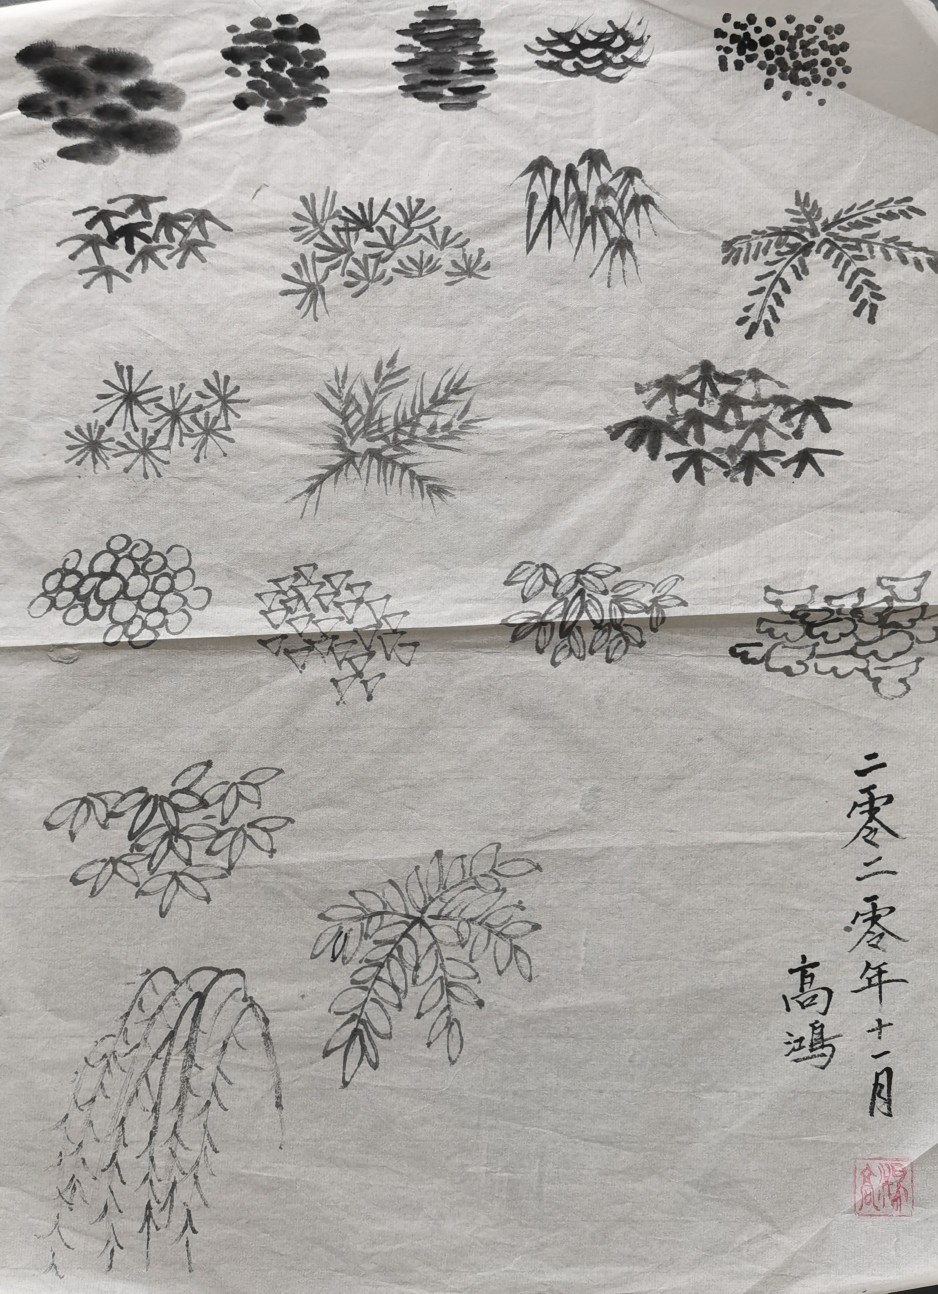 二零二零年十一月
高鸿